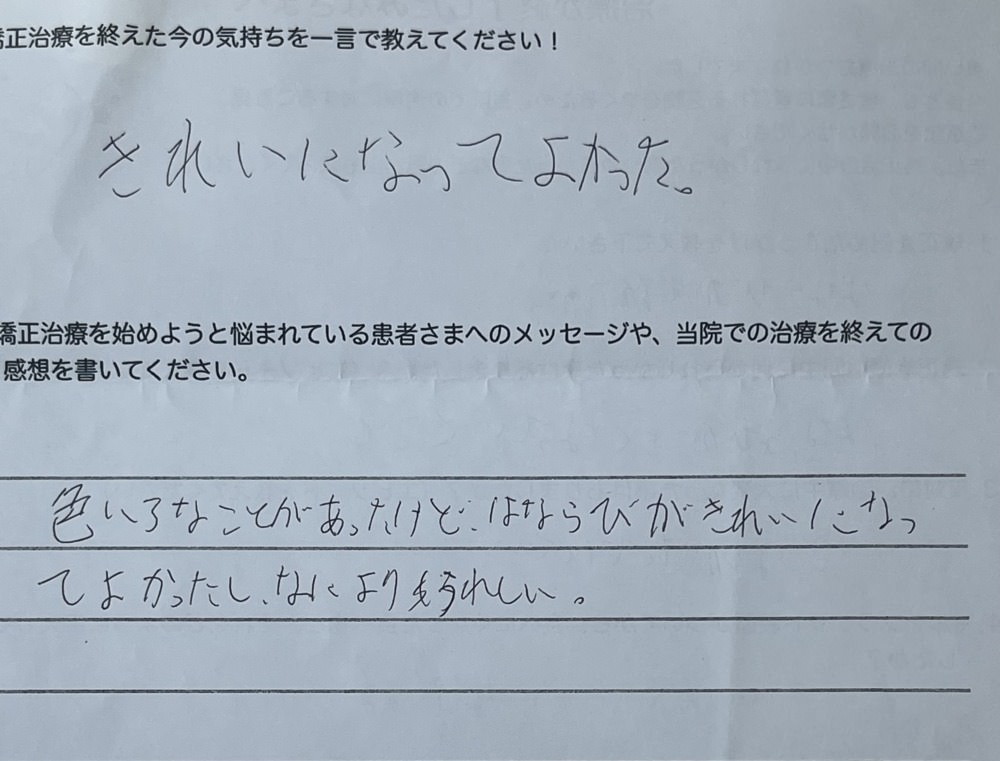 矯正治療を終えた今の気持ちを一言で教えてください！
きれいになってよかった。
矯正治療を始めようと悩まれている患者さまへのメッセージや、当院での治療を終えての
感想を書いてください。
色いろなことがあったけど、はならびがきれいになっ
てよかったし、なによりもうれしい。